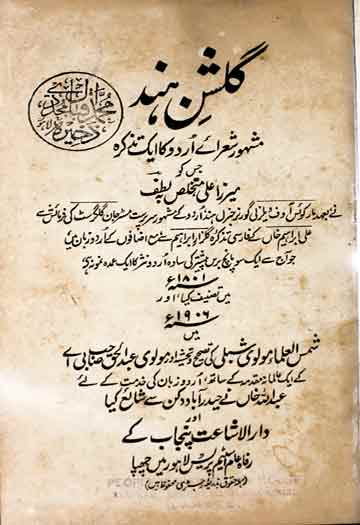 گلشنِ ہند
مشہور شعرائے اُردو کا ایک تذکرہ
جس کو
میرزا علی متخلص بہ لطف
نے بعہد مارکوئس آف ویلزلی گورنر جنرل ہند اُردو کے مشہور سرپرست مسٹر جان گلکرسٹ کی فرمائش سے
علی ابراہیم خاں کے فارسی تذکرہ گلزارِ ابراہیم سے مع اضافوں کے اُردو زبان میں
جو آج سے ایک سو پانچ برس پیشتر کی سادہ اُردو نثر کا ایک عمدہ نمونہ ہے
۱۸۰۱ء
میں تصنیف کیا اور
۱۹۰۶ء
میں
شمس العلما مولوی شبلی کی تصحیح و تحشیہ اور مولوی عبدالحق صاحب بی اے
کے ایک عالمانہ مقدمہ کے ساتھ، اُردو زبان کی خدمت کے لئے
عبداللہ خاں نے حیدرآباد دکن سے شائع کیا
اور
دارالاشاعت پنجاب کے
رفاہ عام اسٹیم پریس لاہور میں چھپا
محمد اقبال مجددی
ذخیرہ